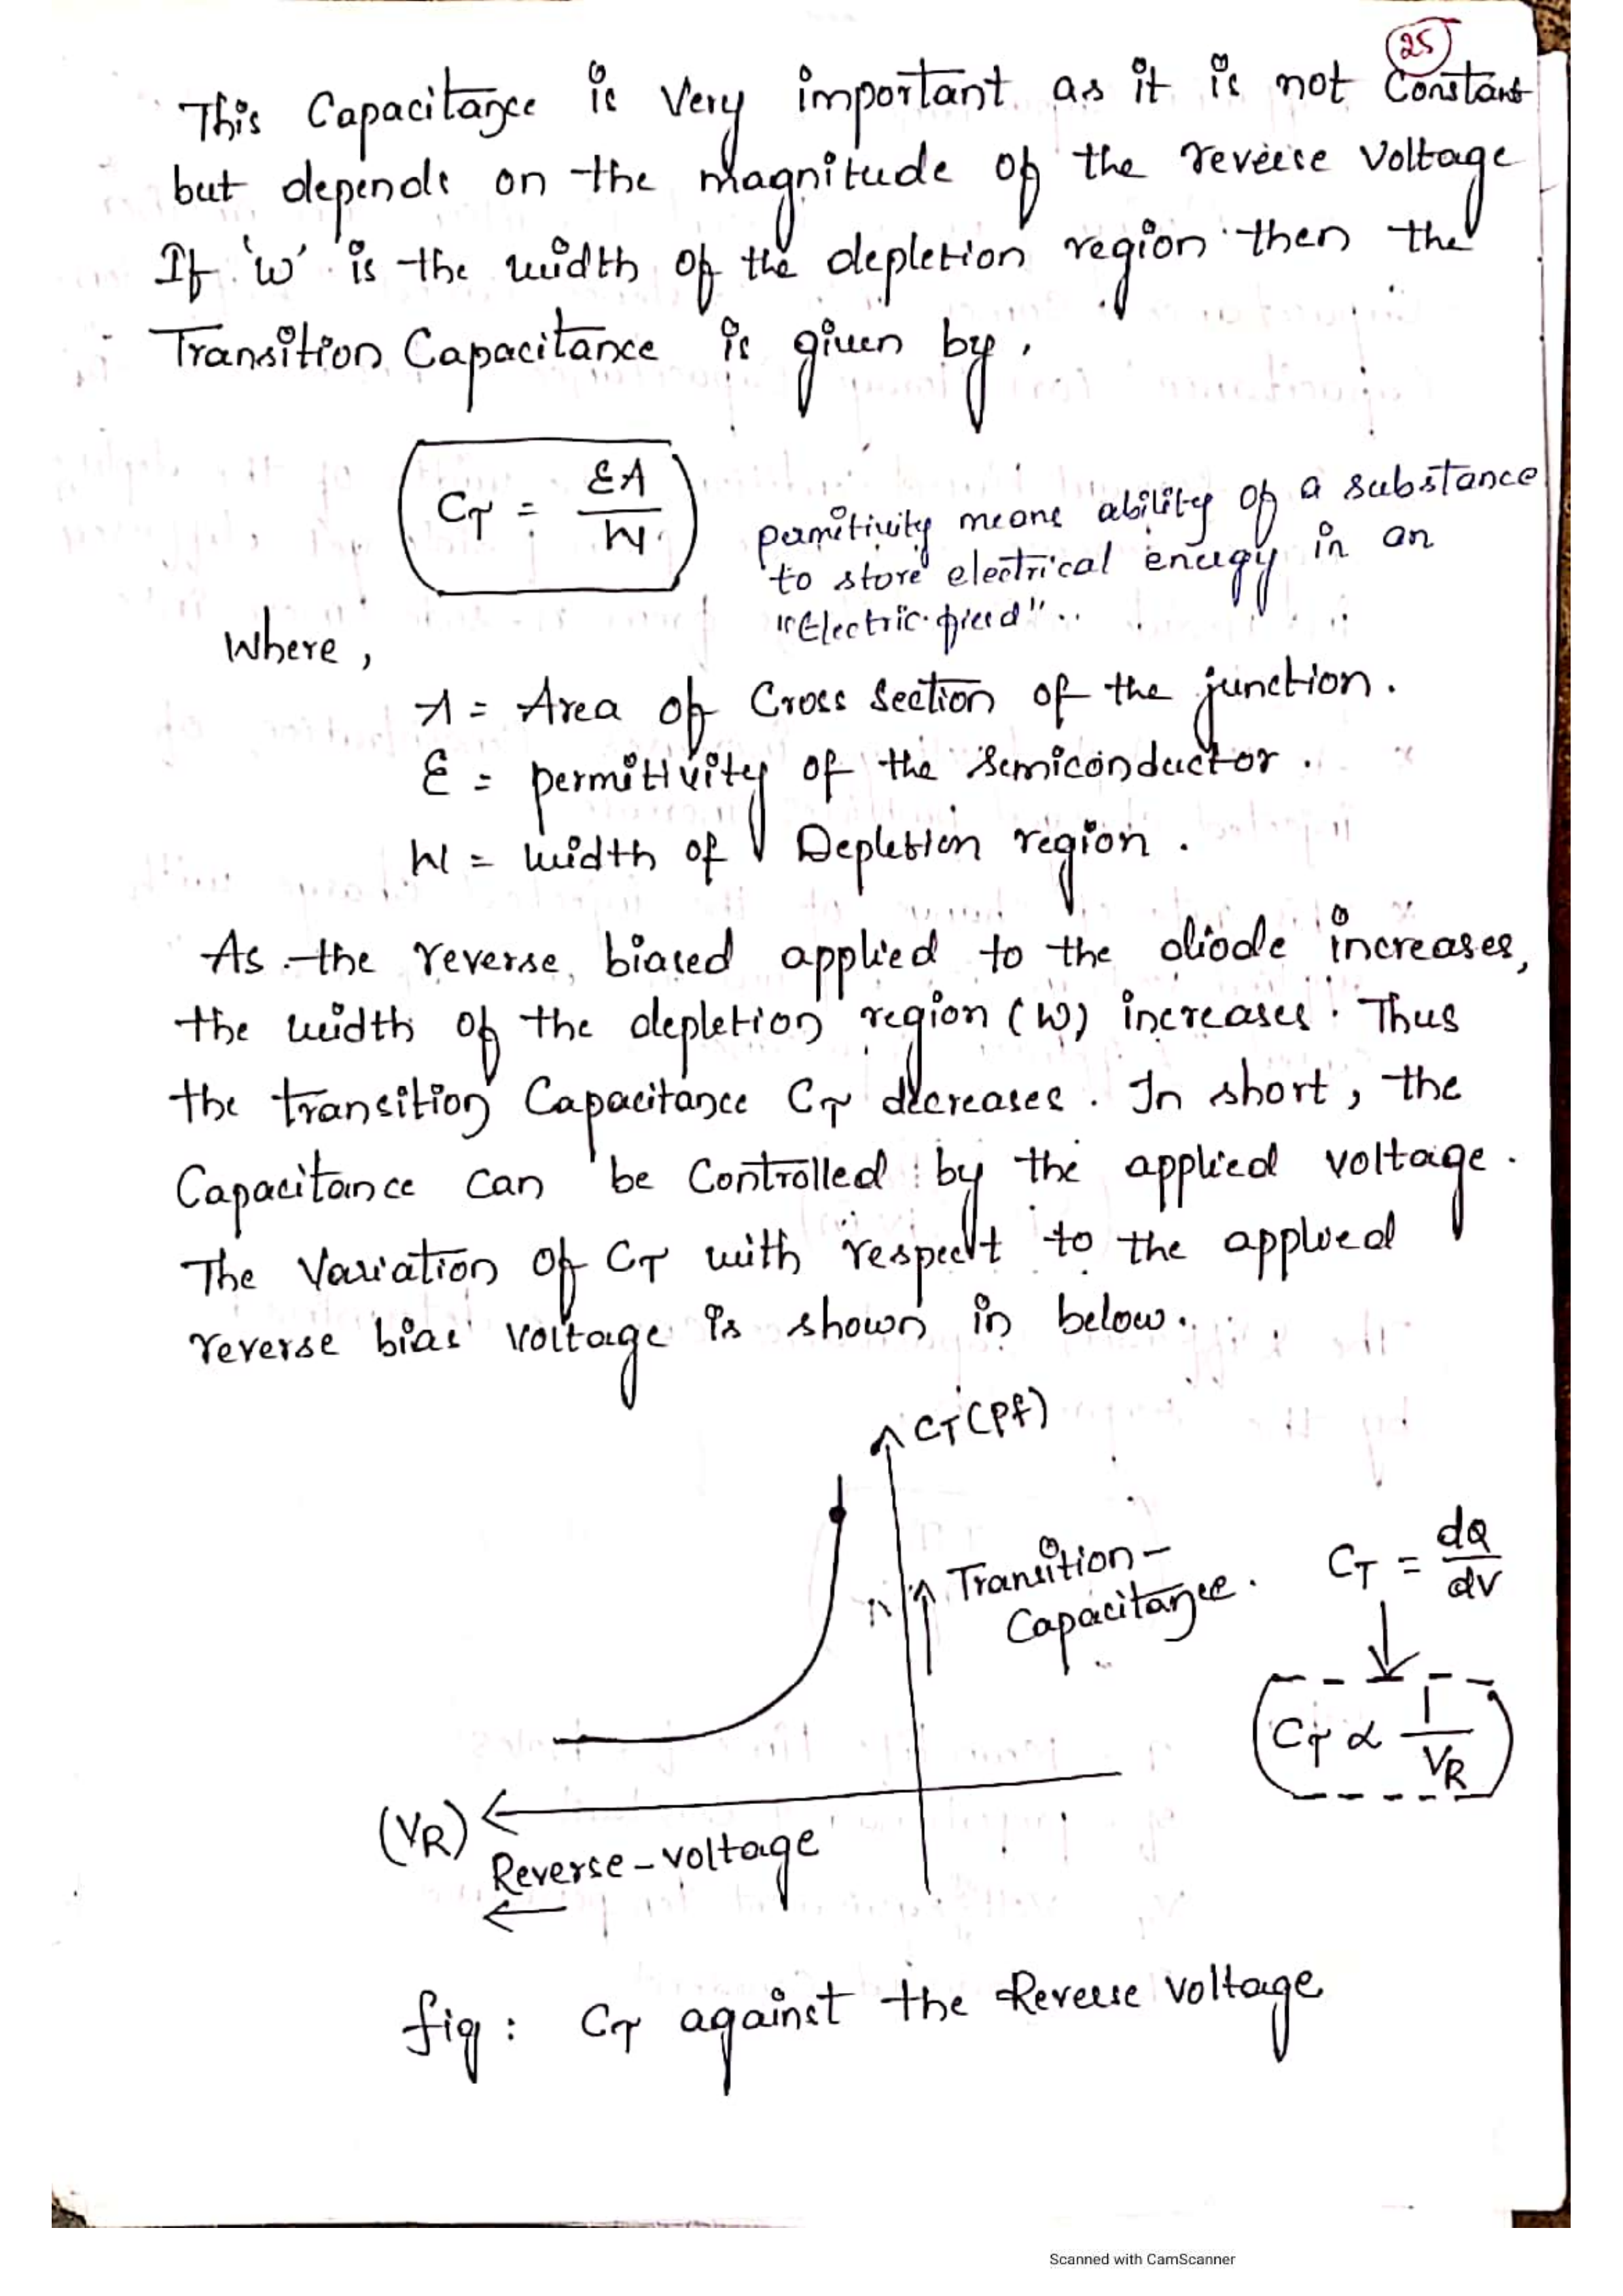 25
This Capacitance is very important as it is not Constant
but depends on the magnitude of the reverse Voltage
If 'w' is the width of the depletion region then the
Transition Capacitance is given by,
C_T = εA / W
permitivity means ability of a substance
to store electrical energy in an
"Electric field"..
Where,
A = Area of Cross Section of the junction.
ε = permittivity of the Semiconductor.
W = width of Depletion region.
As the reverse biased applied to the diode increases,
the width of the depletion region (W) increases. Thus
the transition Capacitance C_T decreases. In short, the
Capacitance can be Controlled by the applied voltage.
The Variation of C_T with respect to the applied
reverse bias voltage is shown in below.
C_T (Pf)
Transition-
Capacitance.
C_T = dQ / dV
C_T ∝ 1 / V_R
(V_R)
Reverse-voltage
fig: C_T against the Reverse voltage
Scanned with CamScanner